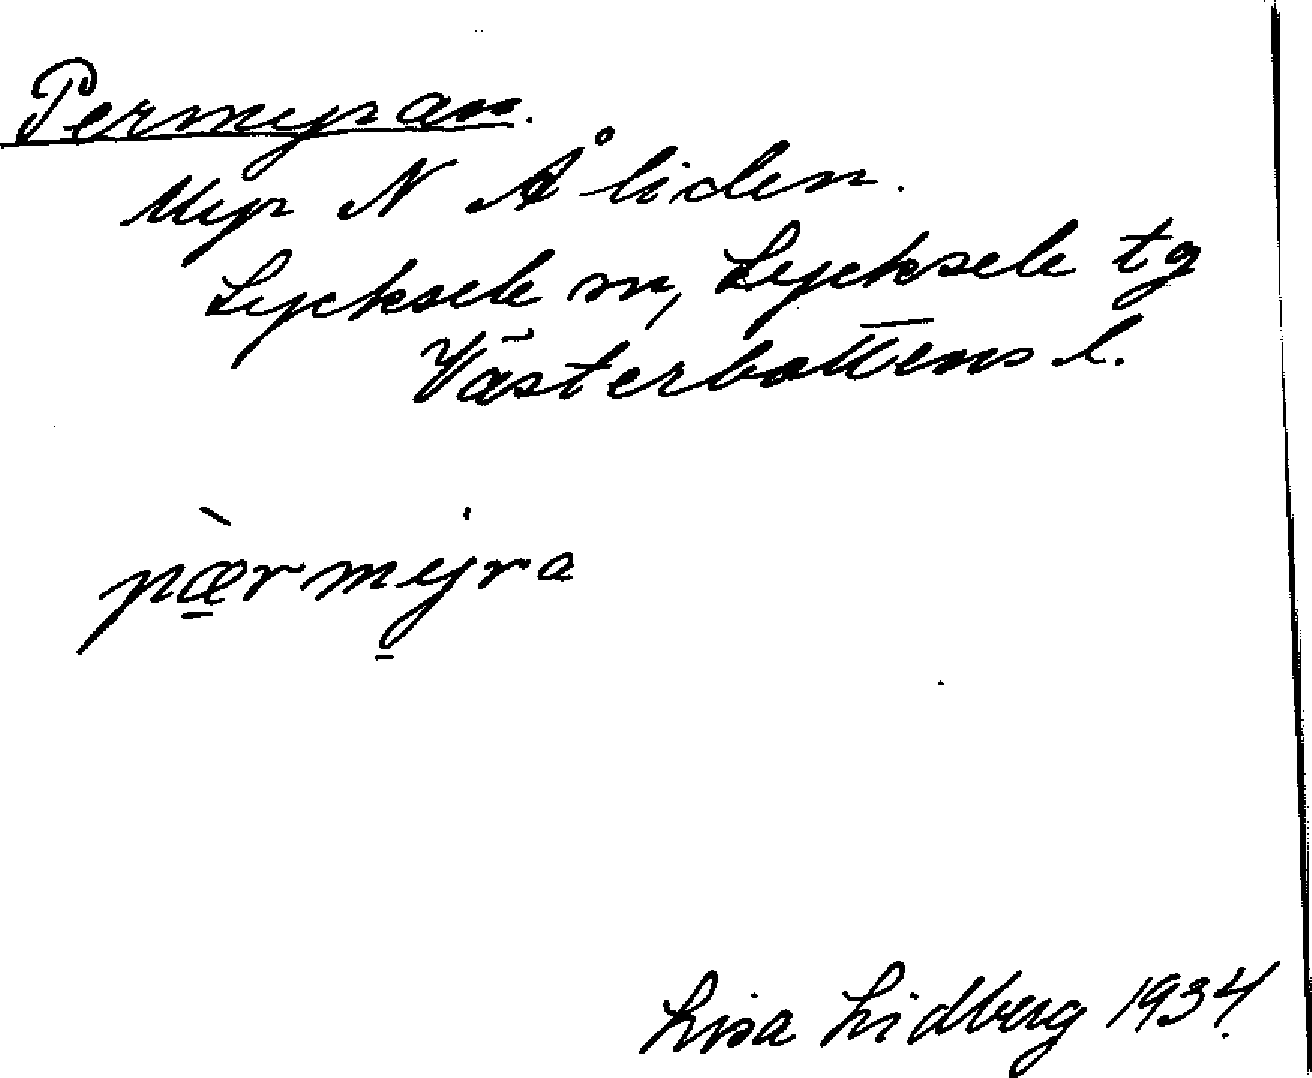 Permyran.
Myr N Åliden.
Lycksele sn, Lycksele tg
Västerbottens l.
pæ̠̀rmy̠ra
Lisa Lidberg 1934.